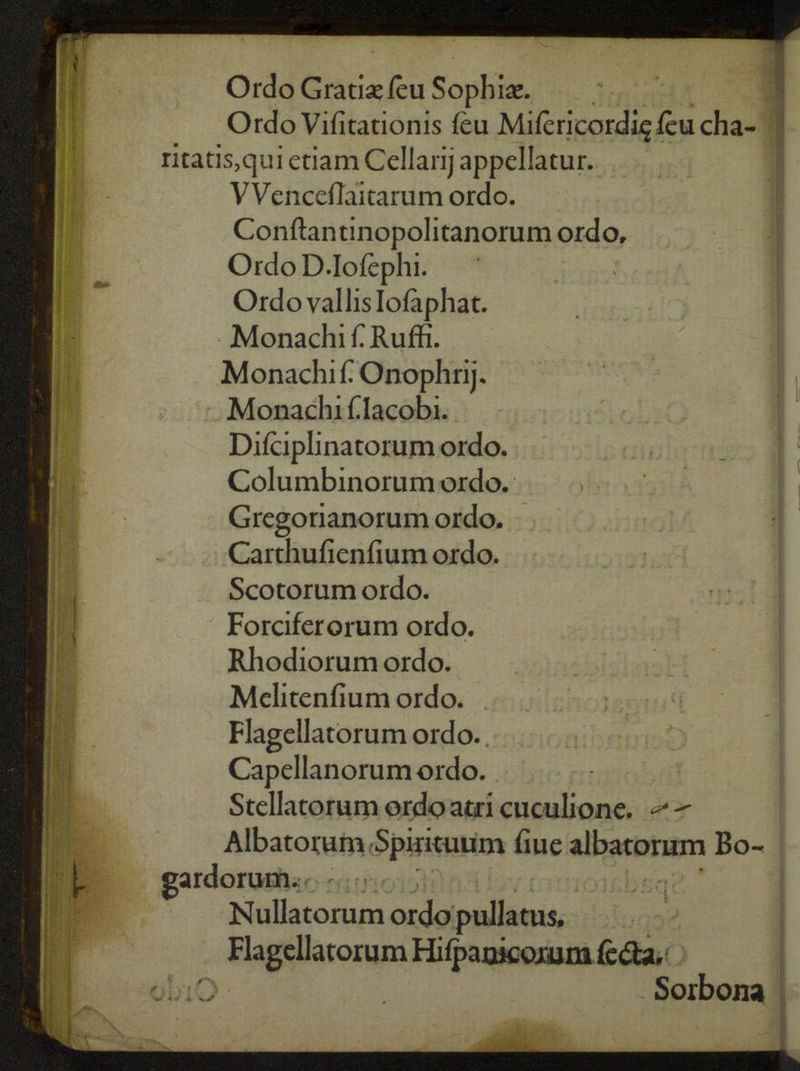 Ordo Gratiæ ſeu Sophiæ.
Ordo Viſitationis ſeu Miſericordię ſeu cha-
ritatis, qui etiam Cellarij appellatur.
VVenceſlaitarum ordo.
Conſtantinopolitanorum ordo,
Ordo D. Ioſephi.
Ordo vallis Ioſaphat.
Monachi ſ. Ruffi.
Monachi ſ. Onophrij.
Monachi ſ. Iacobi.
Diſciplinatorum ordo.
Columbinorum ordo.
Gregorianorum ordo.
Carthuſienſium ordo.
Scotorum ordo.
Forciferorum ordo.
Rhodiorum ordo.
Melitenſium ordo.
Flagellatorum ordo.
Capellanorum ordo.
Stellatorum ordo atri cuculione.
Albatorum Spirituum ſiue albatorum Bo-
gardorum.
Nullatorum ordo pullatus.
Flagellatorum Hiſpanicorum ſecta.
Sorbona